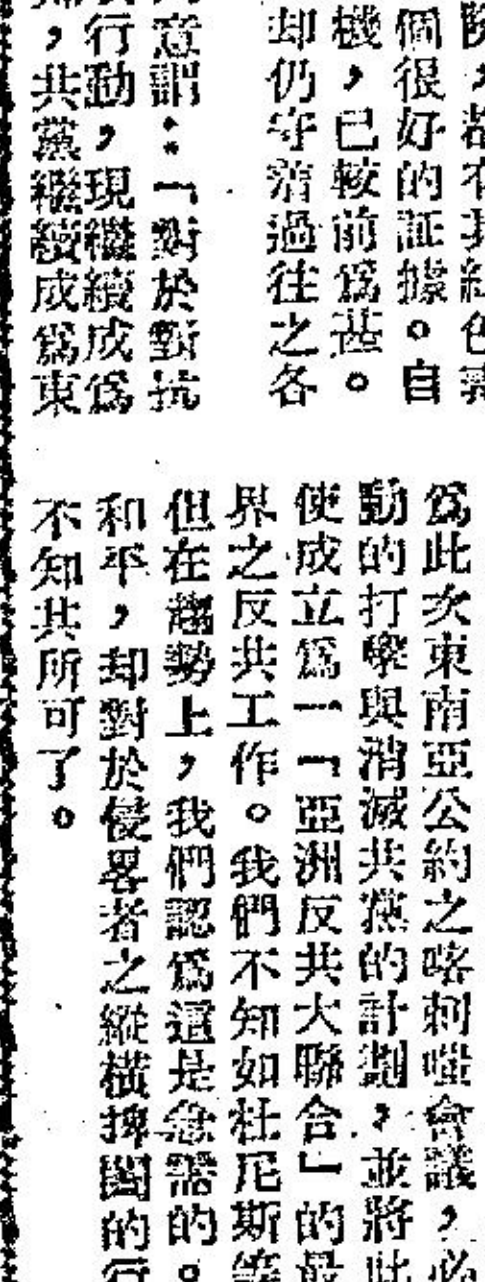 都不其紅色
個很好的証據。自
機，已較前爲甚。
却仍守着過往之各
意謂：「對於對抗
行動，現繼續成爲
，共黨繼續成爲東
爲此次東南亞公約之喀剌蚩會議，必
動的打擊與消滅共黨的計劃，並將此
使成立爲一「亞洲反共大聯合」的最
界之反共工作。我們不知如杜尼斯等
但在趨勢上，我們認爲這是急需的。
和平，却對於侵畧者之縱橫捭闔的行
不知其所可了。